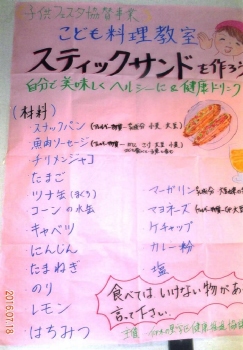 子供フェスタ協賛事業
こども料理教室
スティックサンドを作ろう
自分で美味しくヘルシーに&健康ドリンク
(材料)
・スナックパン
・魚肉ソーセージ
・チリメンジャコ
・たまご
・ツナ缶(まぐろ)
・コーンの水缶
・キャベツ
・にんじん
・たまねぎ
・のり
・レモン
・はちみつ
・マーガリン
・マヨネーズ
・ケチャップ
・カレー粉
・塩
食べてはいけない物があ
言って下さい。
主催
2016/07/18